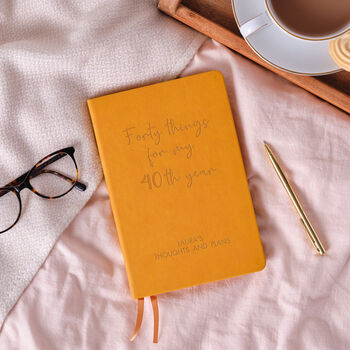 Forty things
for my
40th year
LAURA'S
THOUGHTS AND PLANS